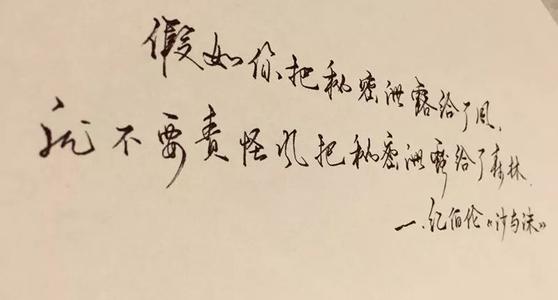 假如你把秘密泄露给了风,
就不要责怪风把秘密泄露给了森林.
一.纪伯伦《沙与沫》